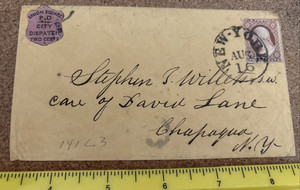 UNION SQUARE
P.O
CITY
DISPATCH
TWO CENTS
NEW-YORK
AUG
16
Stephen T Willets
care of David Lane
Chapaqua
N.Y-
1 2 3 4 5 6 7 8